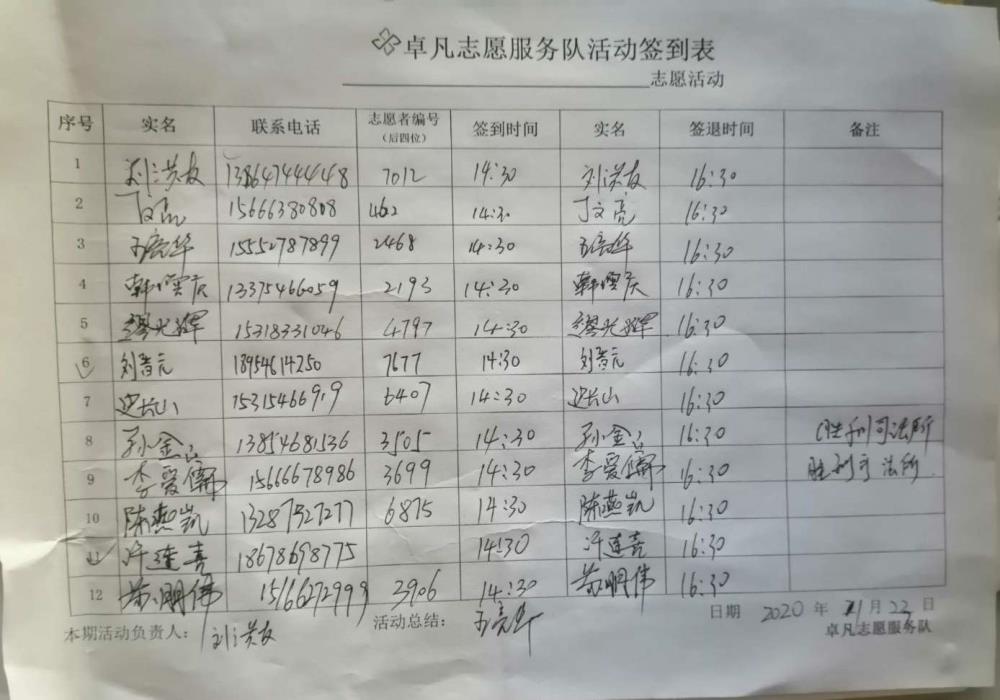 卓凡志愿服务队活动签到表
志愿活动
序号 实名 联系电话 志愿者编号（后四位） 签到时间 实名 签退时间 备注
1 刘洪友 13864744448 7012 14:30 刘洪友 16:30
2 丁文亮 15666380808 14:30 丁文亮 16:30
3 15552787899 2468 14:30 16:30
4 韩雲庆 13375466059 2193 14:30 韩雲庆 16:30
5 缪光辉 15318331046 4797 14:30 缪光辉 16:30
6 刘晋元 18954614250 7677 14:30 刘晋元 16:30
7 边长山 15315466919 6407 14:30 边长山 16:30
8 孙金 13854681536 3505 14:30 孙金 16:30 胜利司法所
9 李爱 15666678986 3699 14:30 李爱 16:30 胜利司法所
10 陈燕凯 13287527277 6875 14:30 陈燕凯 16:30
11 许连喜 18678698775 14:30 许连喜 16:30
12 苏明伟 15166272999 3906 14:30 苏明伟 16:30
本期活动负责人： 刘洪友 活动总结： 日期 2020 年 11月 22 日
卓凡志愿服务队